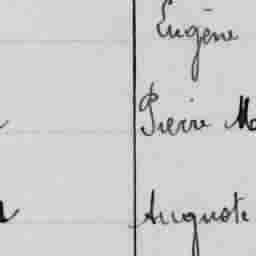 Eugène
Pierre Ma
Auguste